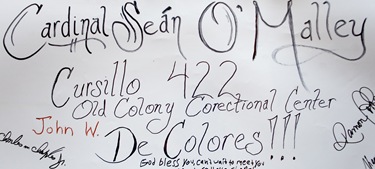 Cardinal Seán O'Malley
Cursillo 422
Old Colony Corectional Center
John W.
De Colores!!!
God bless you, can't wait to meet you